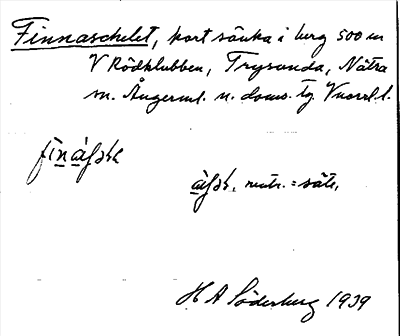 Finnaschelet, kort sänka i berg 500 m
V Rödklubben, Trysunda, Nätra
sn. Ångerml. n. doms. tg. V
neutr. = säte,
H A Söderberg 1939